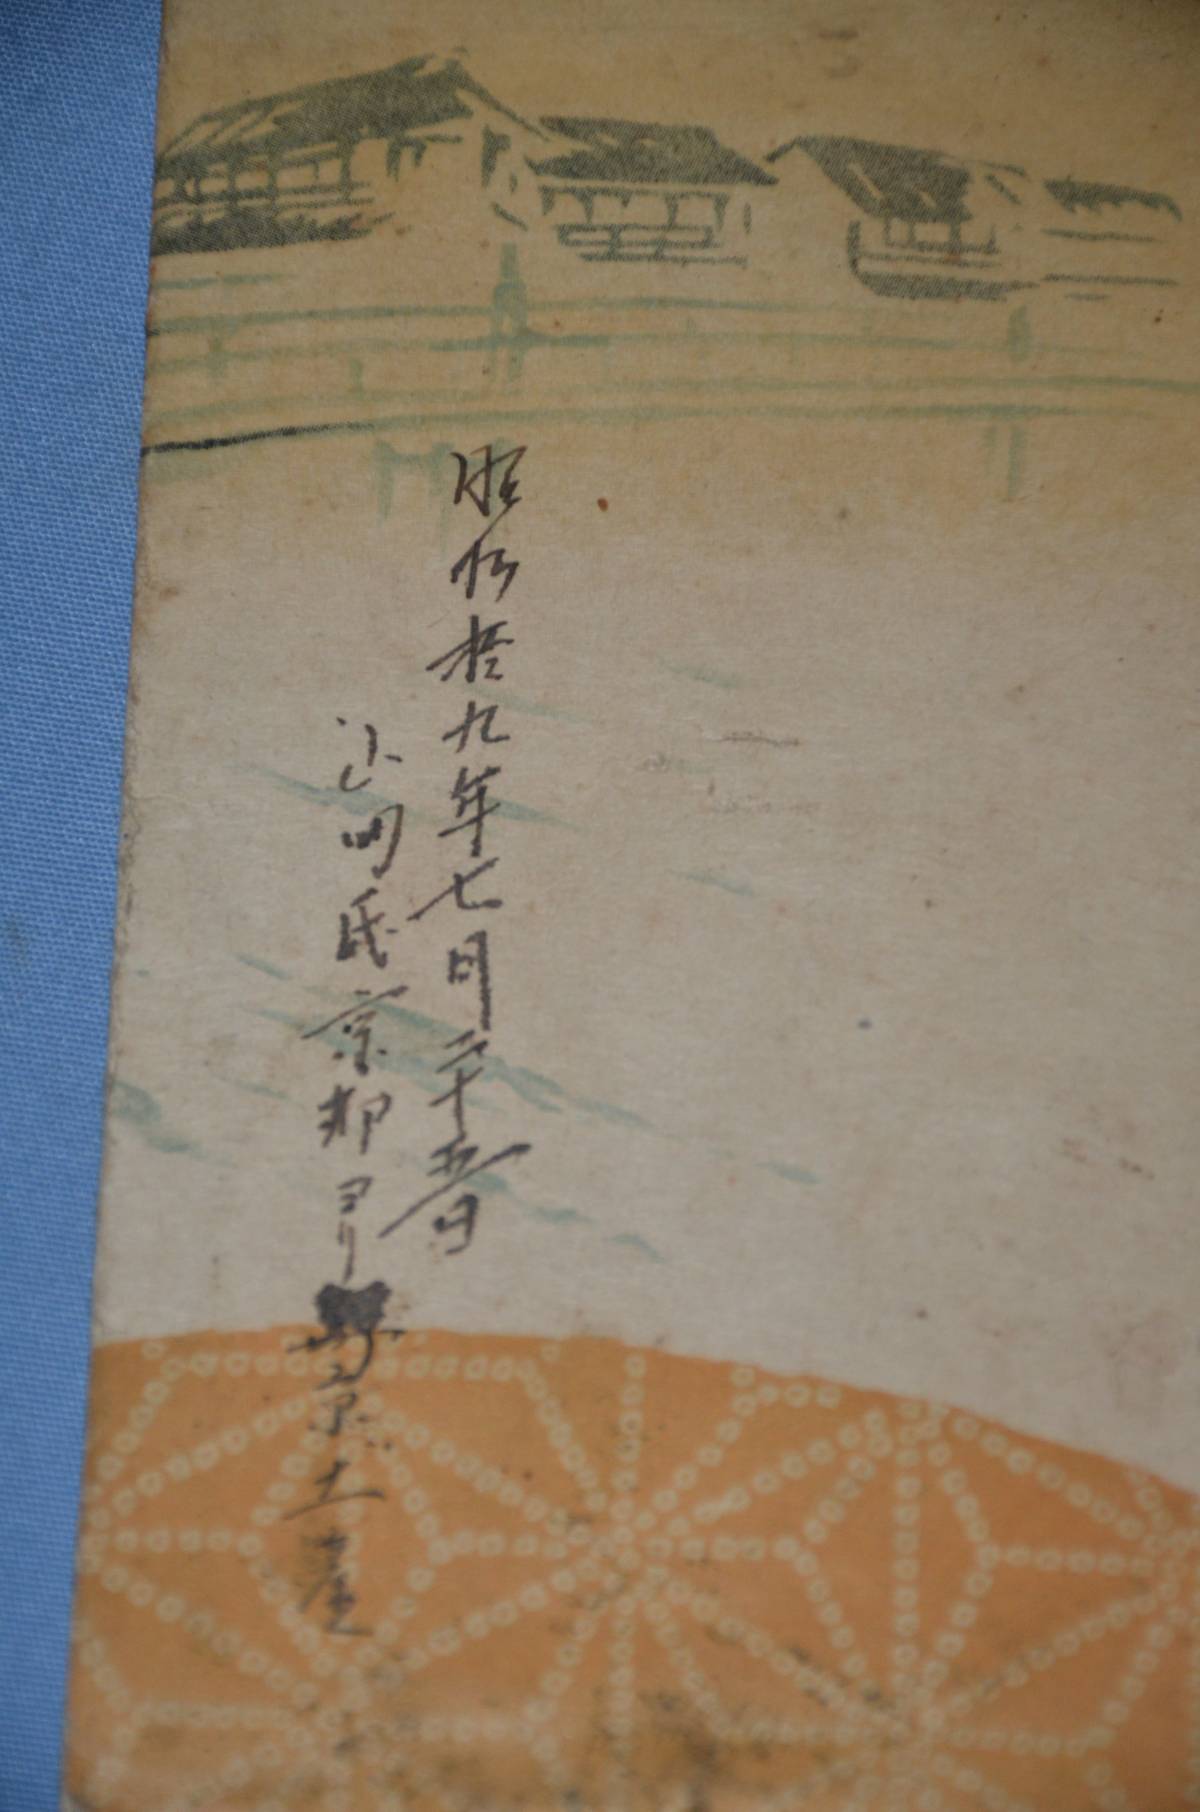 昭和拾九年七月二十五日
氏京都ヨリ帰京土産